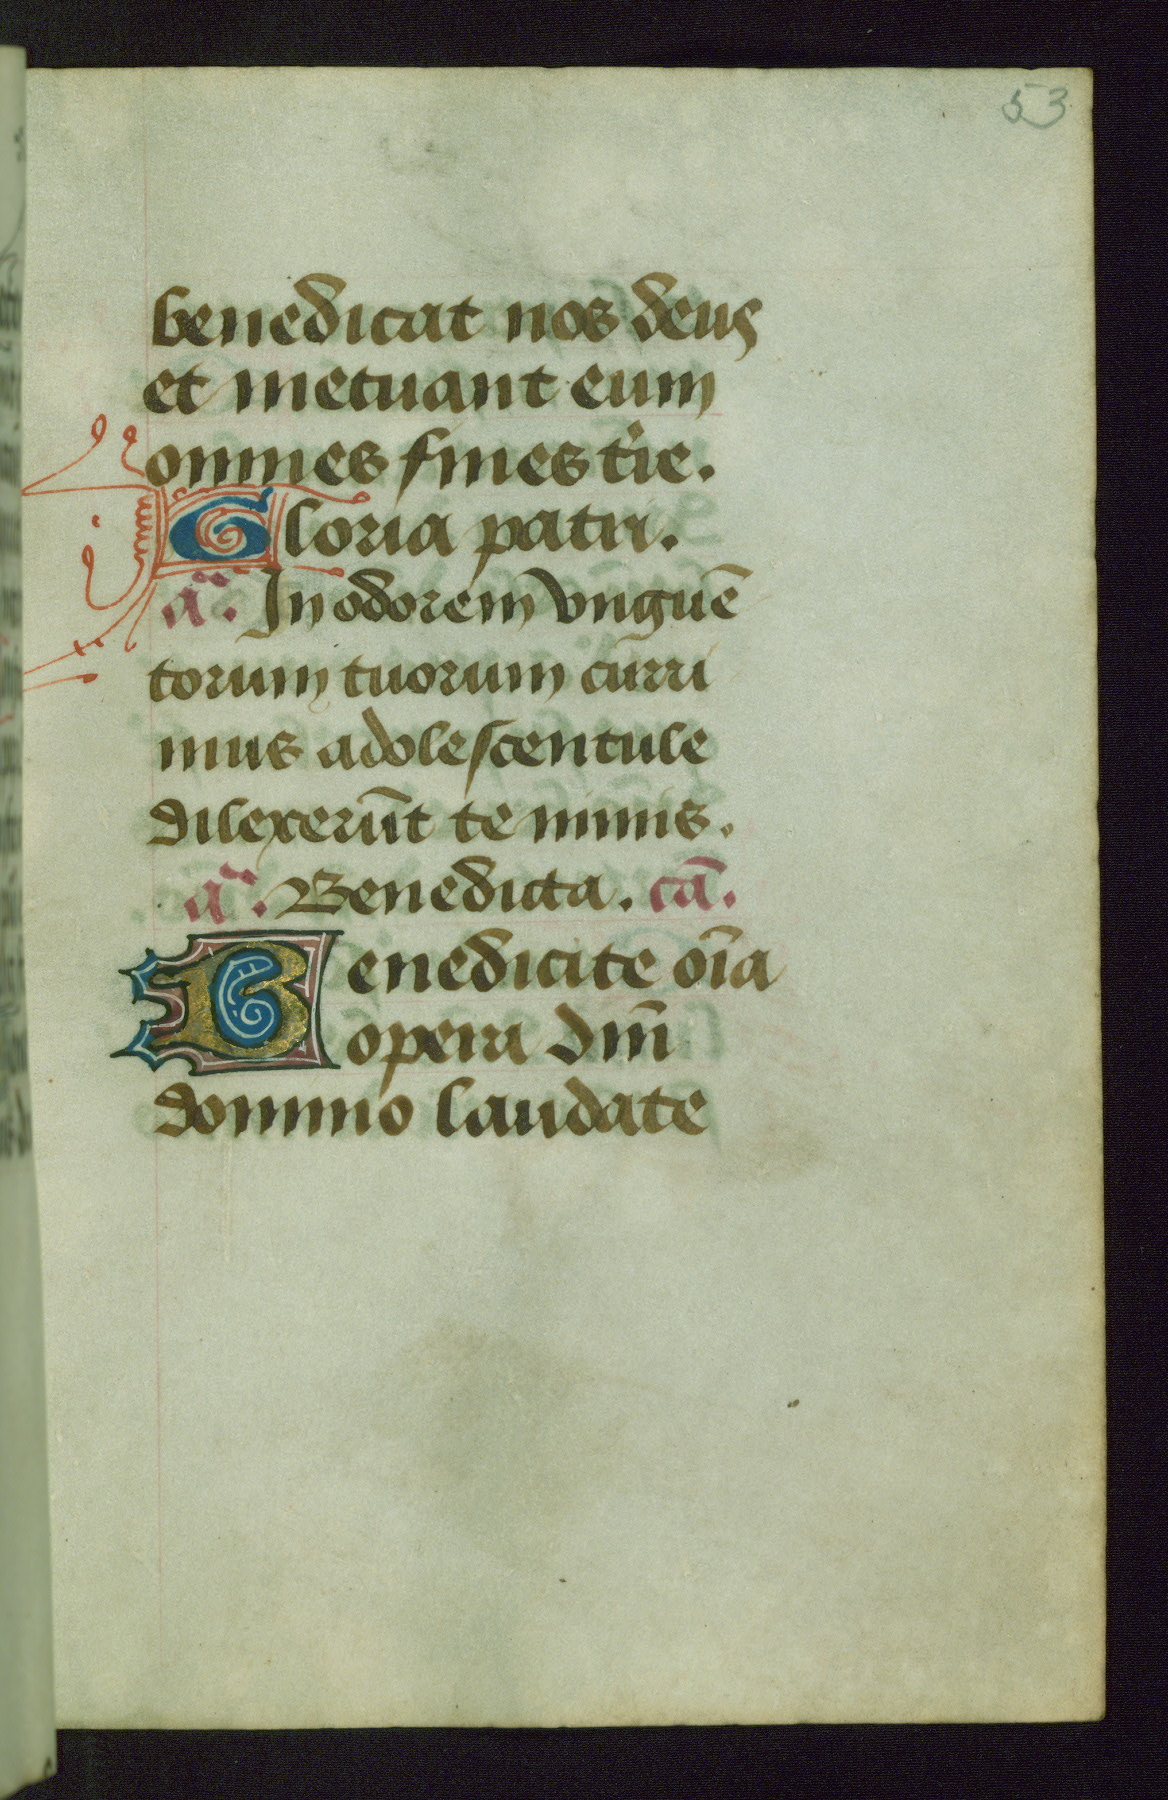 53
benedicat nos deus
et metuant eum
omnes fines tr̄ie.
Gloria patri.
an̄. In odorem vnguē
torum tuorum curri
mus adolescentule
dilexerūt te nimis.
an̄. Benedicta. cā.
Benedicite oīa
opera dm̄
domino laudate